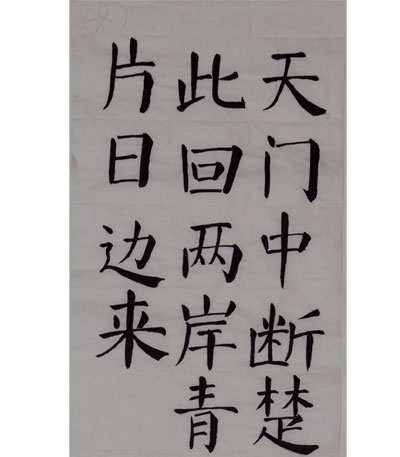 天门中断楚
此回两岸青
片日边来